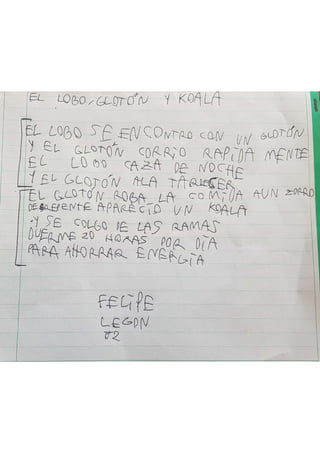 EL LOBO, GLOTÓN Y KOALA
EL LOBO SE ENCONTRO CON UN GLOTÓN
Y EL GLOTÓN CORRIO RAPIDA MENTE
EL LOBO CAZA DE NOCHE
Y EL GLOTÓN ALA TARDECER
EL GLOTÓN ROBA LA COMIDA A UN ZORRO
DE REPENTE APARECIO UN KOALA
Y SE COLGO DE LAS RAMAS
DUERME 20 HORAS POR DÍA
PARA AHORRAR ENERGÍA
FELIPE
LEGON